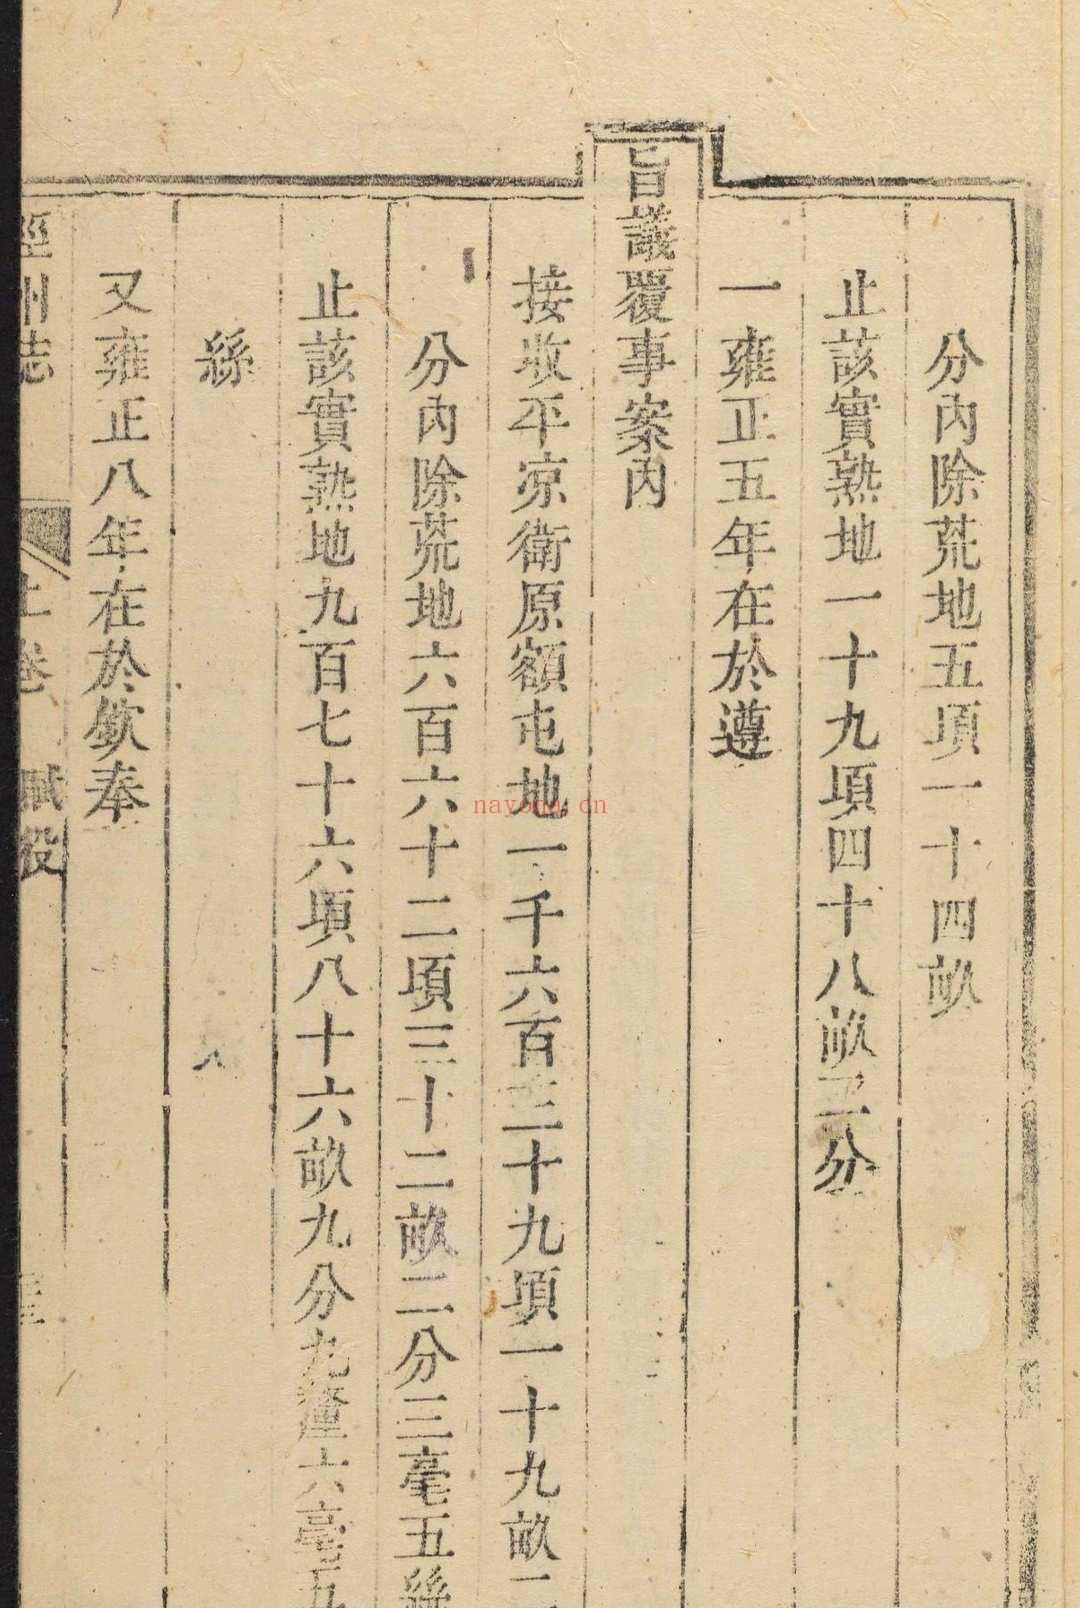 分內除荒地五頃一十四畝
止該實熟地一十九項四十八畝二分
一雍正五年在於遵
旨議覆事案內
接收平凉衛原額屯地一千六百三十九頃一十九畝二
分內除荒地六百六十二頃三十二畝二分三毫五絲
止該實熟地九百七十六頃八十六畝九分九釐六毫五
絲
又雍正八年在於欽奉
涇州志
上卷
賦役
nayona.cn